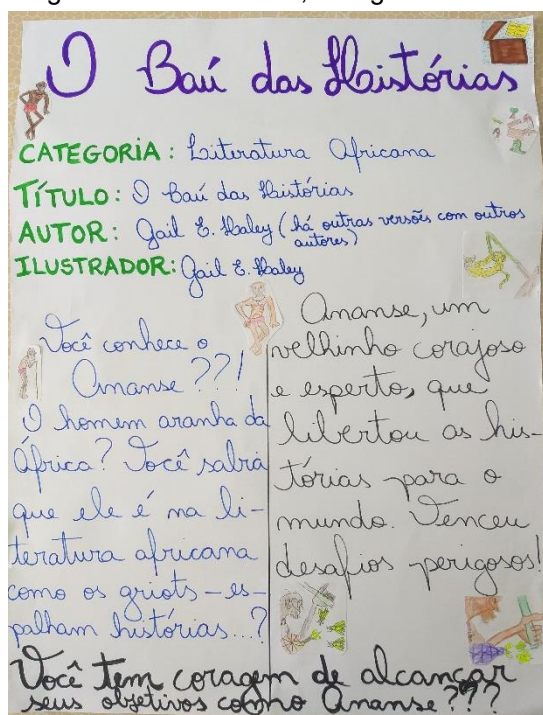 O Baú das Histórias
CATEGORIA: Literatura Africana
TÍTULO: O Baú das Histórias
AUTOR: Gail E. Haley (há outras versões com outros
autores)
ILUSTRADOR: Gail E. Haley
Você conhece o
Ananse??!
O homem aranha da
África? Você sabia
que ele é na li-
teratura africana
como os griots - es-
palham histórias...?
Ananse, um
velhinho corajoso
e esperto, que
libertou as his-
tórias para o
mundo. Venceu
desafios perigosos!
Você tem coragem de alcançar
seus objetivos como Ananse???